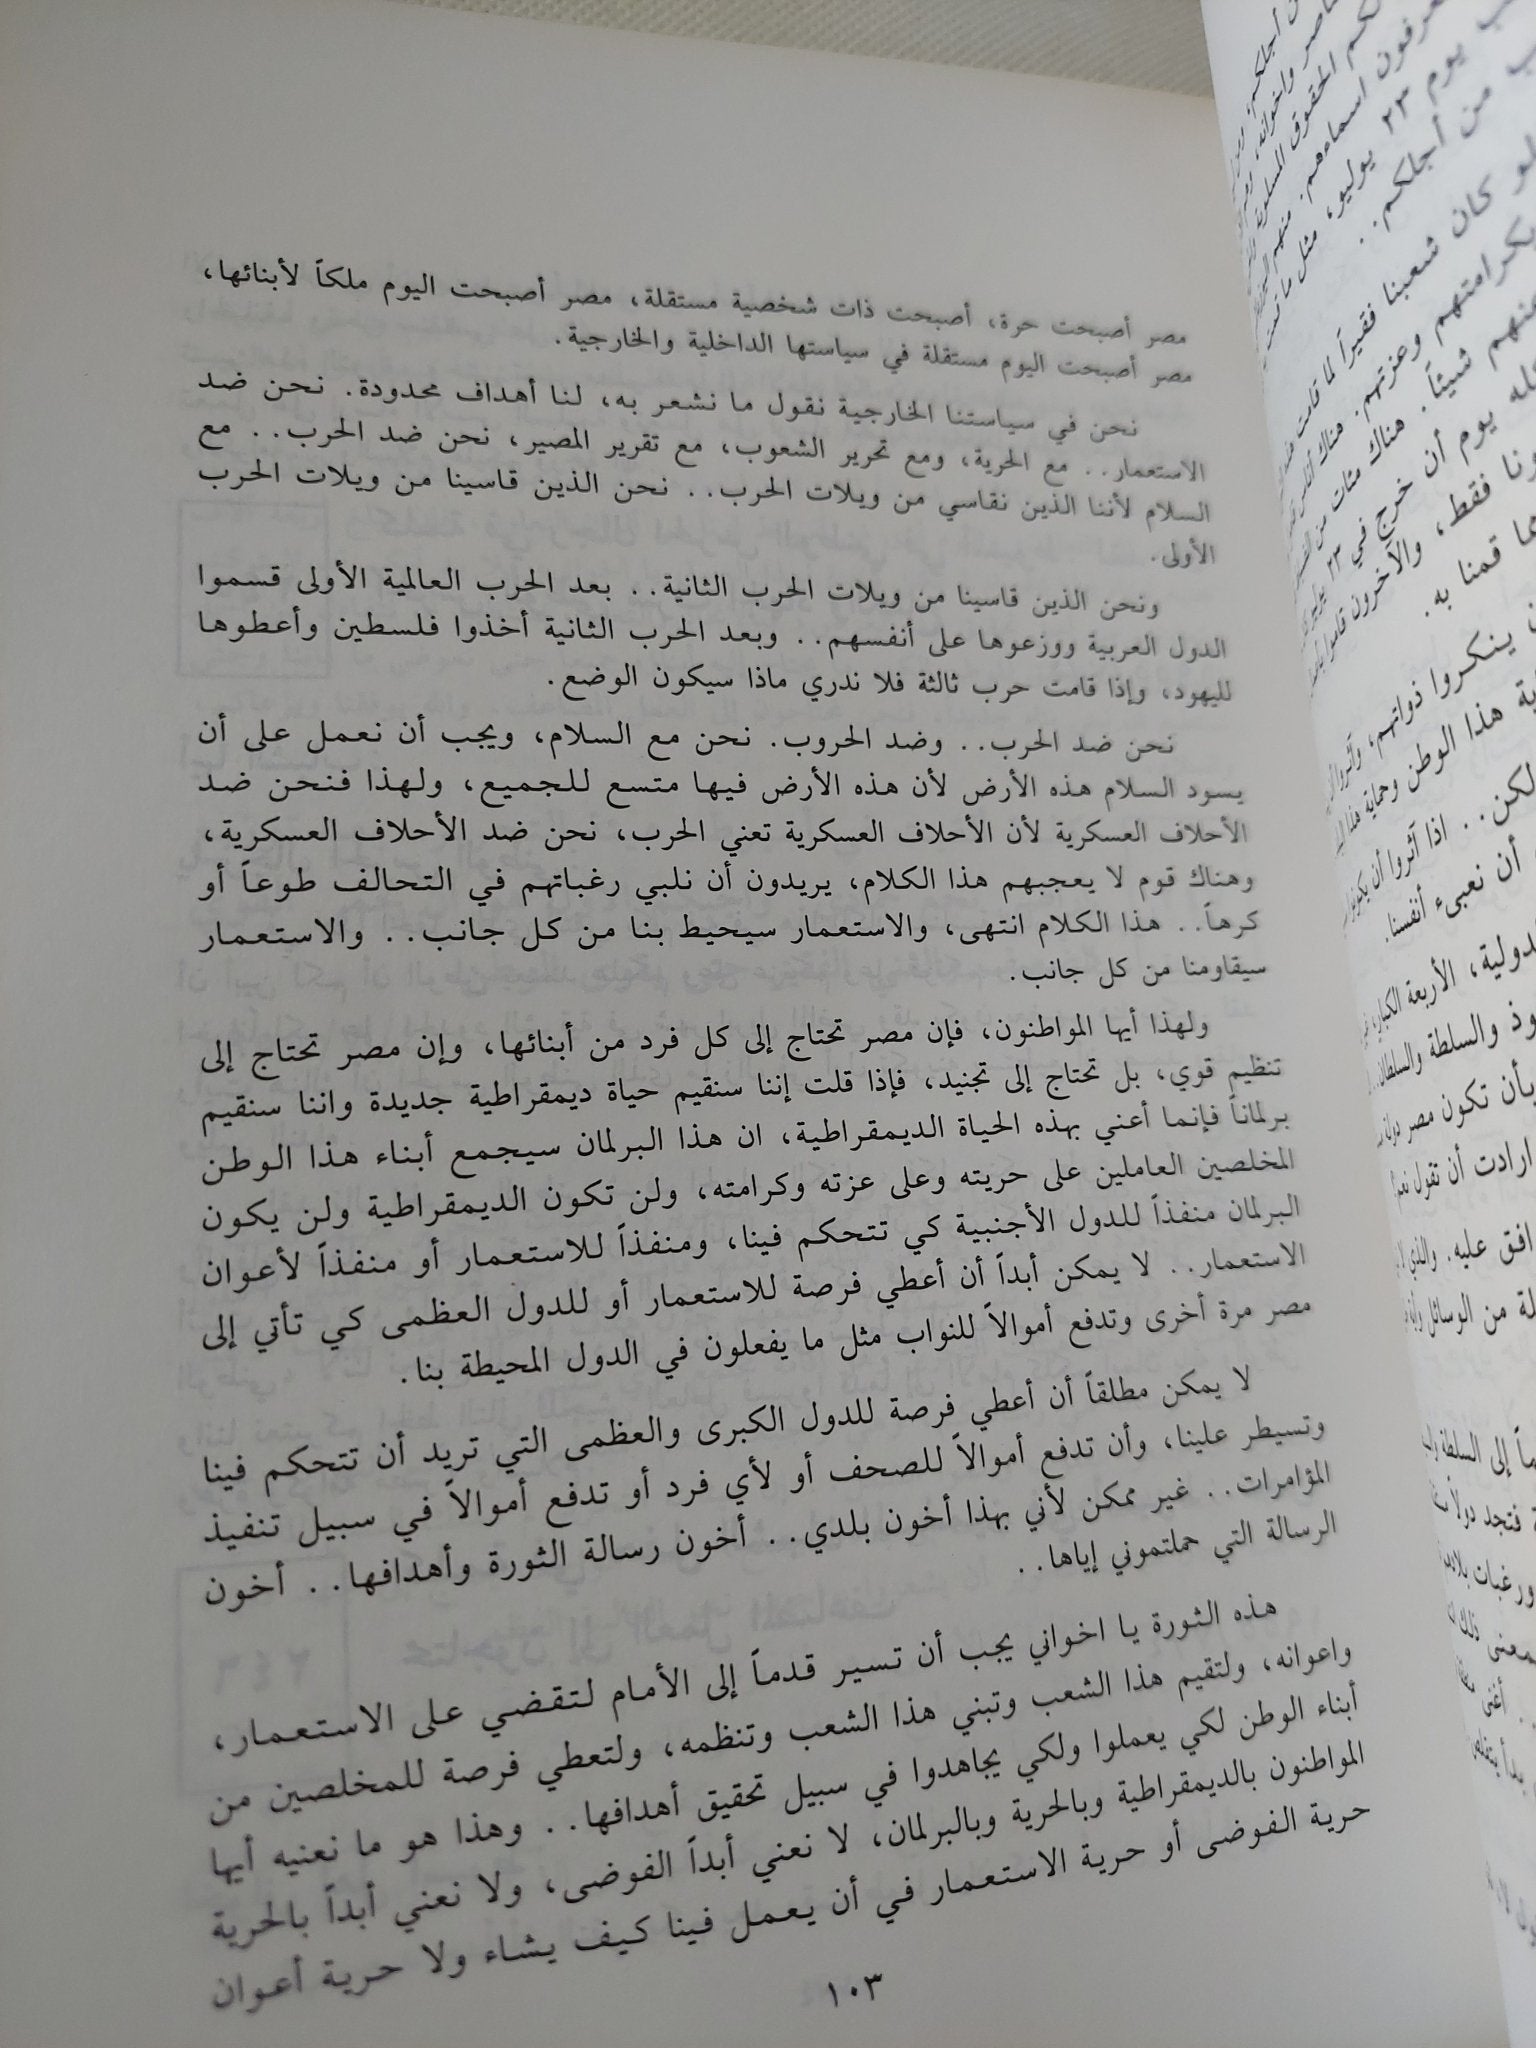 مصر أصبحت حرة، أصبحت ذات شخصية مستقلة، مصر أصبحت اليوم ملكاً لأبنائها،
مصر أصبحت اليوم مستقلة في سياستها الداخلية والخارجية.
نحن في سياستنا الخارجية نقول ما نشعر به، لنا أهداف محدودة. نحن ضد
الاستعمار.. مع الحرية، ومع تحرير الشعوب، مع تقرير المصير، نحن ضد الحرب.. مع
السلام لأننا الذين نقاسي من ويلات الحرب.. نحن الذين قاسينا من ويلات الحرب
الأولى.
ونحن الذين قاسينا من ويلات الحرب الثانية.. بعد الحرب العالمية الأولى قسموا
الدول العربية ووزعوها على أنفسهم.. وبعد الحرب الثانية أخذوا فلسطين وأعطوها
لليهود، وإذا قامت حرب ثالثة فلا ندري ماذا سيكون الوضع.
نحن ضد الحرب.. وضد الحروب. نحن مع السلام، ويجب أن نعمل على أن
يسود السلام هذه الأرض لأن هذه الأرض فيها متسع للجميع، ولهذا فنحن ضد
الأحلاف العسكرية لأن الأحلاف العسكرية تعني الحرب، نحن ضد الأحلاف العسكرية،
وهناك قوم لا يعجبهم هذا الكلام، يريدون أن نلبي رغباتهم في التحالف طوعاً أو
كرهاً.. هذا الكلام انتهى، والاستعمار سيحيط بنا من كل جانب.. والاستعمار
سيقاومنا من كل جانب.
ولهذا أيها المواطنون، فإن مصر تحتاج إلى كل فرد من أبنائها، وإن مصر تحتاج إلى
تنظيم قوي، بل تحتاج إلى تجنيد، فإذا قلت إننا سنقيم حياة ديمقراطية جديدة واننا سنقيم
برلماناً فإنما أعني بهذه الحياة الديمقراطية، ان هذا البرلمان سيجمع أبناء هذا الوطن
المخلصين العاملين على حريته وعلى عزته وكرامته، ولن تكون الديمقراطية ولن يكون
البرلمان منفذاً للدول الأجنبية كي تتحكم فينا، ومنفذاً للاستعمار أو منفذاً لأعوان
الاستعمار.. لا يمكن أبداً أن أعطي فرصة للاستعمار أو للدول العظمى كي تأتي إلى
مصر مرة أخرى وتدفع أموالاً للنواب مثل ما يفعلون في الدول المحيطة بنا.
لا يمكن مطلقاً أن أعطي فرصة للدول الكبرى والعظمى التي تريد أن تتحكم فينا
وتسيطر علينا، وأن تدفع أموالاً للصحف أو لأي فرد أو تدفع أموالاً في سبيل تنفيذ
المؤامرات.. غير ممكن لأني بهذا أخون بلدي.. أخون رسالة الثورة وأهدافها.. أخون
الرسالة التي حملتموني إياها..
هذه الثورة يا اخواني يجب أن تسير قدماً إلى الأمام لتقضي على الاستعمار،
واعوانه، ولتقيم هذا الشعب وتبني هذا الشعب وتنظمه، ولتعطي فرصة للمخلصين من
أبناء الوطن لكي يعملوا ولكي يجاهدوا في سبيل تحقيق أهدافها.. وهذا هو ما نعنيه أيها
المواطنون بالديمقراطية وبالحرية وبالبرلمان، لا نعني أبداً الفوضى، ولا نعني أبداً بالحرية
حرية الفوضى أو حرية الاستعمار في أن يعمل فينا كيف يشاء ولا حرية أعوان
١٠٣
يوم ٢٣ يوليو، مثل ما
من أجلكم..
كان شعبنا فقيراً لما قامت
بكرامتهم وعزتهم. هناك
منهم شيئاً. هناك مئات من
يوم أن خرج في ٢٣
فقط، والآخرون
قمنا به.
ينكروا ذواتهم،
هذا الوطن وحماية هذا
لكن.. اذا آثروا أن
أن نعبىء أنفسنا.
الأربعة الكبار،
والسلطة والسلطان
بأن تكون مصر
ارادت أن تقول
عليه. والذي
من الوسائل
إلى السلطة
فتجد
ورغبات
ذلك